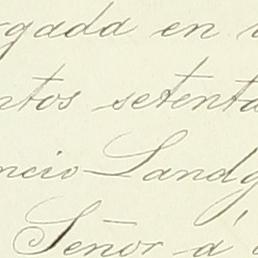 rgada en
ntos setenta
ncio Landg
Señor á